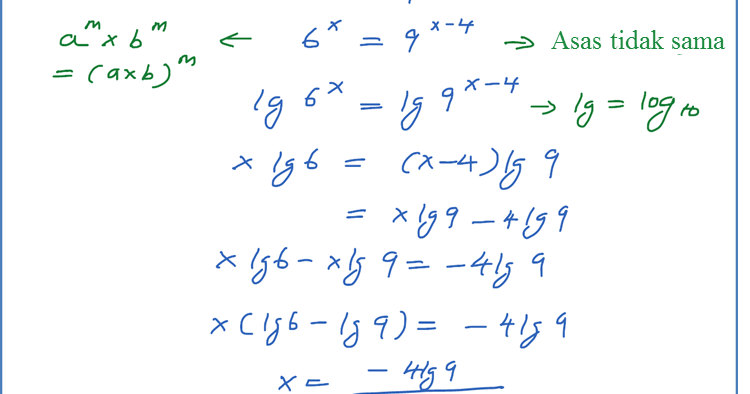 a^m × b^m ← 6^x = 9^(x-4) → Asas tidak sama
= (a×b)^m
lg 6^x = lg 9^(x-4) → lg = log₁₀
x lg 6 = (x-4) lg 9
= x lg 9 - 4 lg 9
x lg 6 - x lg 9 = -4 lg 9
x (lg 6 - lg 9) = -4 lg 9
x = -4 lg 9